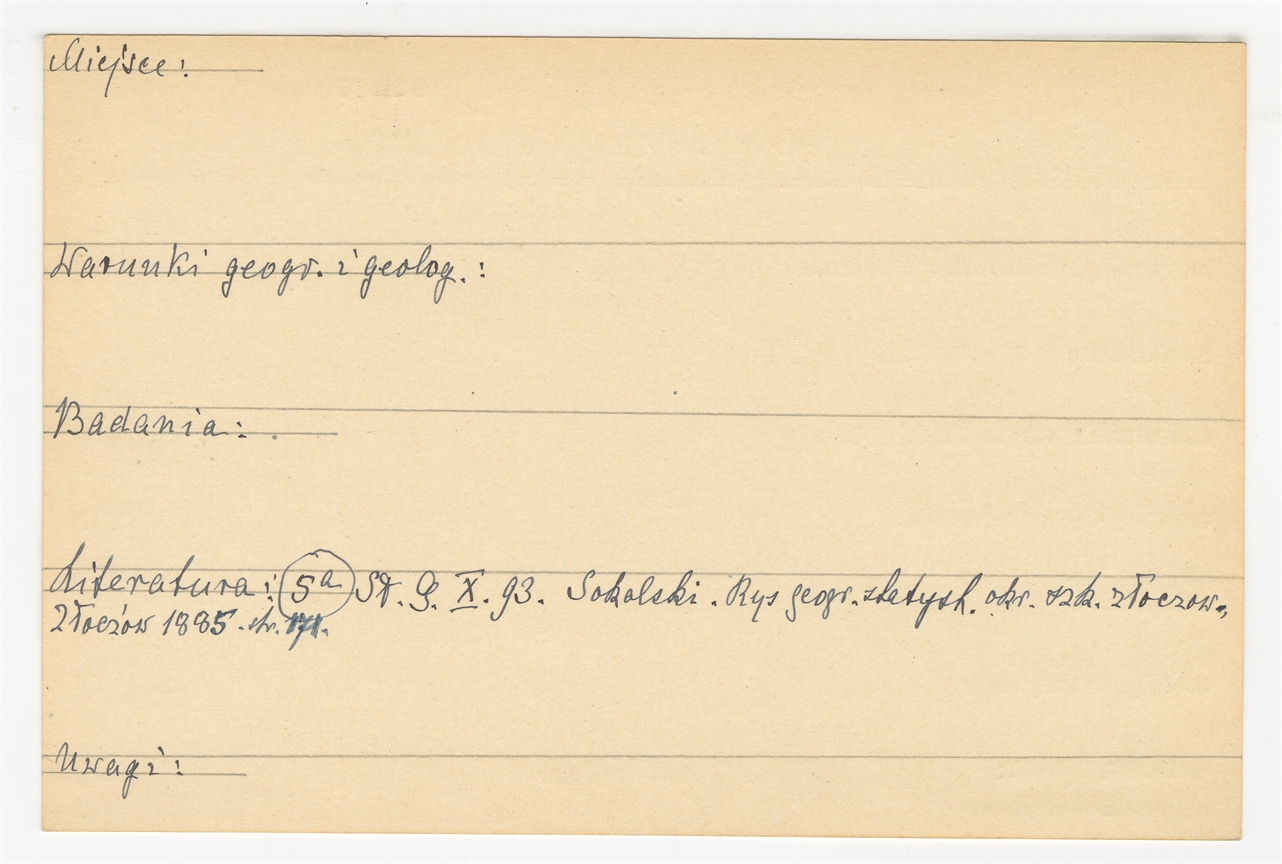 Miejsce:
Warunki geogr. i geolog.:
Badania:
Literatura: 5a Sł. G. X. 93. Sokalski. Rys geogr. statyst. okr. szk. złoczow.,
Złoczów 1885. str. 171.
Uwagi: